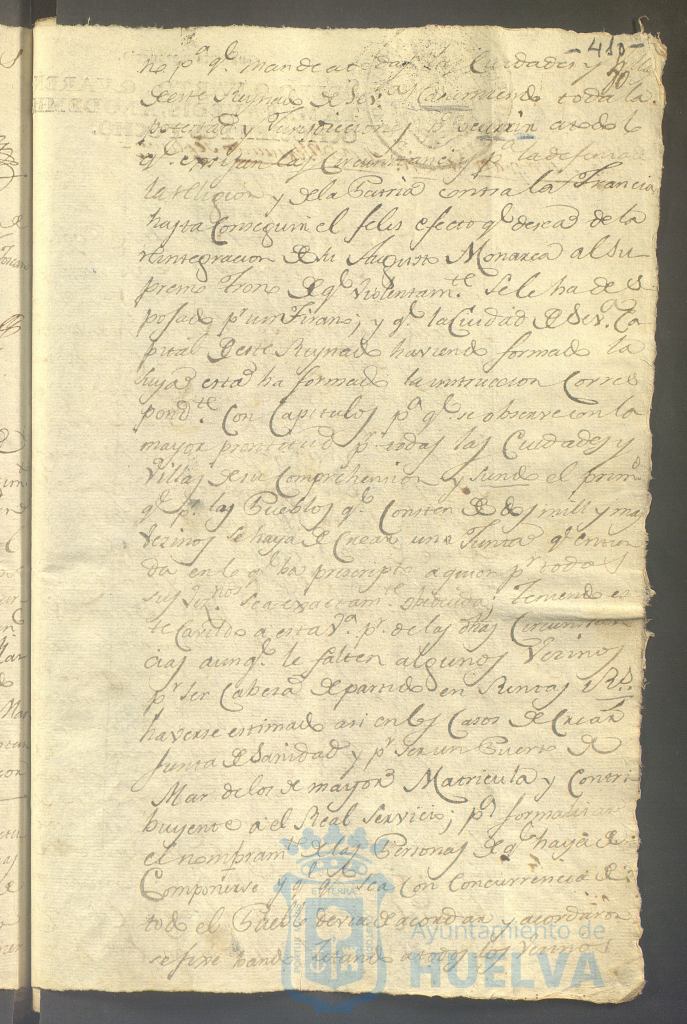 -410-
70
no pª qᵉ mande a todas las Ciudades y Villas
de este Reynado de Sevª y Caminiendo toda la
potestad y Jurisdiccion pª ocurrir a todo lo
qᵉ exijan las Circunstancias pª la defensa de
la religion y de la Patria contra la Francia
hasta conseguir el felis efecto qᵉ desea de la
reintegracion de su Augusto Monarca al Su
premo Trono de qᵉ violentamᵗᵉ se le ha des
posado pʳ un Tirano; y qᵉ la Ciudad de Sevª Ca
pital de este Reynado haviendo formado la
suya esta ha formado la instruccion Corres
pondᵗᵉ con Capitulos pª qᵉ se observe con la
mayor prontitud pʳ todas las Ciudades y
Villas de su Comprehension y siendo el primº
qᵉ pª los Pueblos qᵉ Consten de dos mill y mas
Vezinos se haya de Crear una Junta qᵉ entien
da en lo qᵉ ha prescripto a quien pʳ todos
sus Vezºˢ sea exactamᵗᵉ obedecida; teniendo es
te Cavildo a esta Vª pʳ de las dhas Circunstan
cias aunqᵉ le falten algunos Vezinos
pʳ ser Cabeza de partido en Rentas Rˢ
haverse estimado asi en los Casos de Crear
Junta de Sanidad y pʳ ser un Puerto de
Mar de los de mayor Matricula y Contri
buyente a el Real Servicio; pª formalizar
el nombramᵗᵒ de las Personas de qᵉ haya de
Componerse y qᵉ sea con concurrencia de
todo el Pueblo devia de acordar y acordaron
se fixe bando citando a todos los Vezinos
Ayuntamiento de
HUELVA